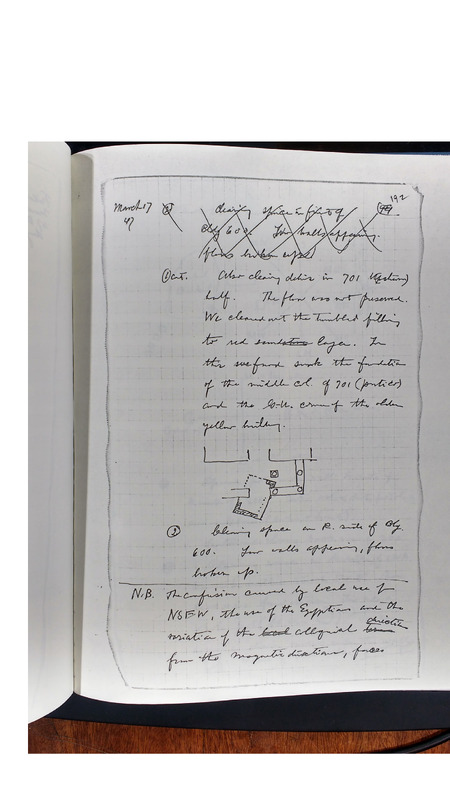 192
March 17
47
② clearing space in front of
Bldg 600. Low walls appearing,
floors broken up.
① cont. Also clearing debris in 701 (Eastern)
half. The floor was not preserved.
We cleaned out the tumbled filling
to red sand layer. In
this we found sunk the foundation
of the middle col. of 701 (portico)
and the corner of the older
yellow building.
② Clearing space on R. side of Bldg.
600. Low walls appearing, floors
broken up.
N.B. The confusion caused by local use of
NSEW, the use of the Egyptians and the
variation of the local colloquial direction
from the magnetic directions, forces